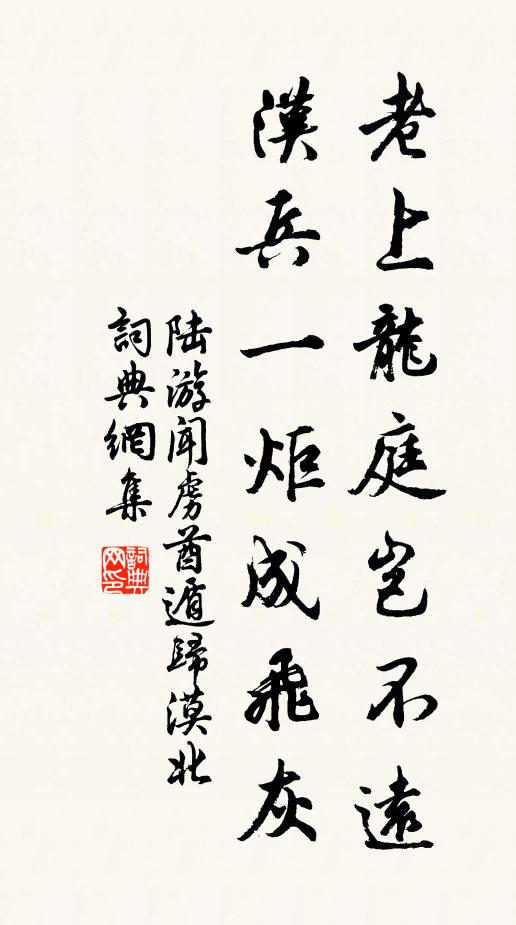 老上龍庭豈不遠
漢兵一炬成飛灰
陆游闻虏酋遁歸漠北
詞典網集
詞典網印